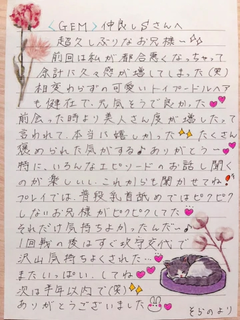 〈GEM〉仲良しSさんへ
超久しぶりなお兄様〜🎶
前回は私が都合悪くなっちゃって
余計に久々感が増してしまった(笑)
相変わらずの可愛いトイプードルヘア
も健在で、元気そうで良かった💕
前会った時より美人さん度が増したって
言われて、本当に嬉しかった✨たくさん
褒められた気がする♪ありがとう〜💗
特に、いろんなエピソードのお話し聞く
のが楽しいし、これからも聞かせてね❗
プレイでは、普段乳首舐めではピクピク
しないお兄様がピクピクしてた💕
それだけ気持ちよかったんだ〜♪
1回戦の後はすぐ攻守交代で
沢山気持ちよくされた…💕
またいっぱい、してね💕💕
次は半年以内で(笑)
ありがとうございました
そらのより